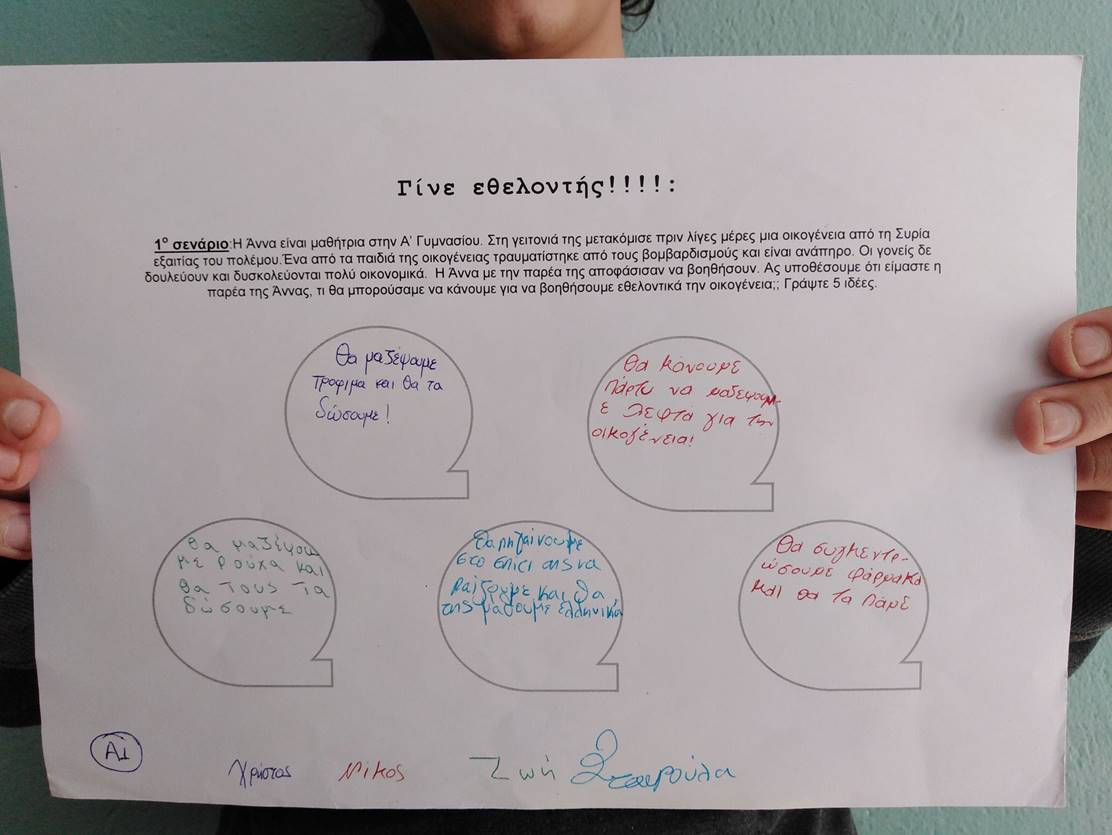 Γίνε εθελοντής!!!!:
1ο σενάριο:Η Άννα είναι μαθήτρια στην Α' Γυμνασίου. Στη γειτονιά της μετακόμισε πριν λίγες μέρες μια οικογένεια από τη Συρία
εξαιτίας του πολέμου.Ένα από τα παιδιά της οικογένειας τραυματίστηκε από τους βομβαρδισμούς και είναι ανάπηρο. Οι γονείς δε
δουλεύουν και δυσκολεύονται πολύ οικονομικά. Η Άννα με την παρέα της αποφάσισαν να βοηθήσουν. Ας υποθέσουμε ότι είμαστε η
παρέα της Άννας, τι θα μπορούσαμε να κάνουμε για να βοηθήσουμε εθελοντικά την οικογένεια;; Γράψτε 5 ιδέες.
Θα μαζέψουμε
τρόφιμα και θα τα
δώσουμε!
Θα κάνουμε
πάρτυ να μαζέψουμ-
ε λεφτά για την
οικογένεια!
Θα μαζέψου
με ρούχα και
θα τους τα
δώσουμε
Θα πηγαίνουμε
στο σπίτι της να
παίζουμε και θα
της μάθουμε ελληνικά
Θα συγκεντρ-
ώσουμε φάρμακα
και θα τα πάμε
Α1
Χρήστος Νίκος Ζωή Σταυρούλα